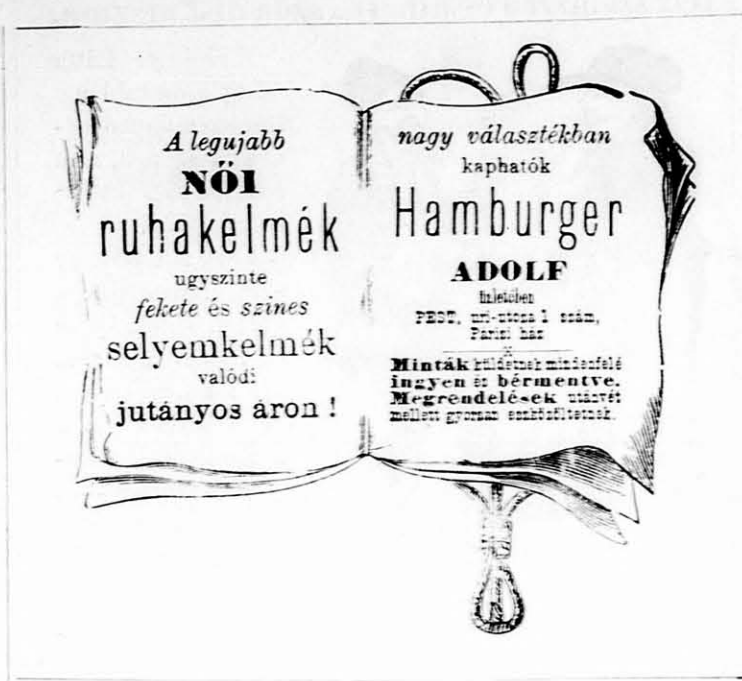 A legujabb
NŐI
ruhakelmék
ugyszinte
fekete és szines
selyemkelmék
valódi
jutányos áron !
nagy választékban
kaphatók
Hamburger
ADOLF
üzletében
PEST, uri-utcza 1 szám,
Párisi ház
Minták küldetnek mindenfelé
ingyen és bérmentve.
Megrendelések utánvét
mellett gyorsan eszközöltetnek.